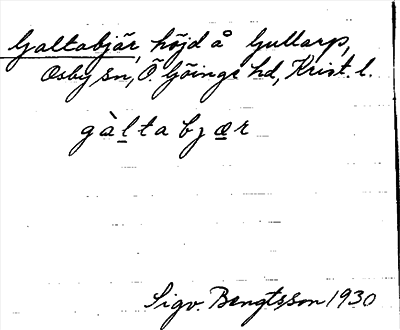 Galtabjär, höjd å Gullarp,
Osby sn, Ö Göinge hd, Krist. l.
gàltabjær
Sigv. Bengtsson 1930